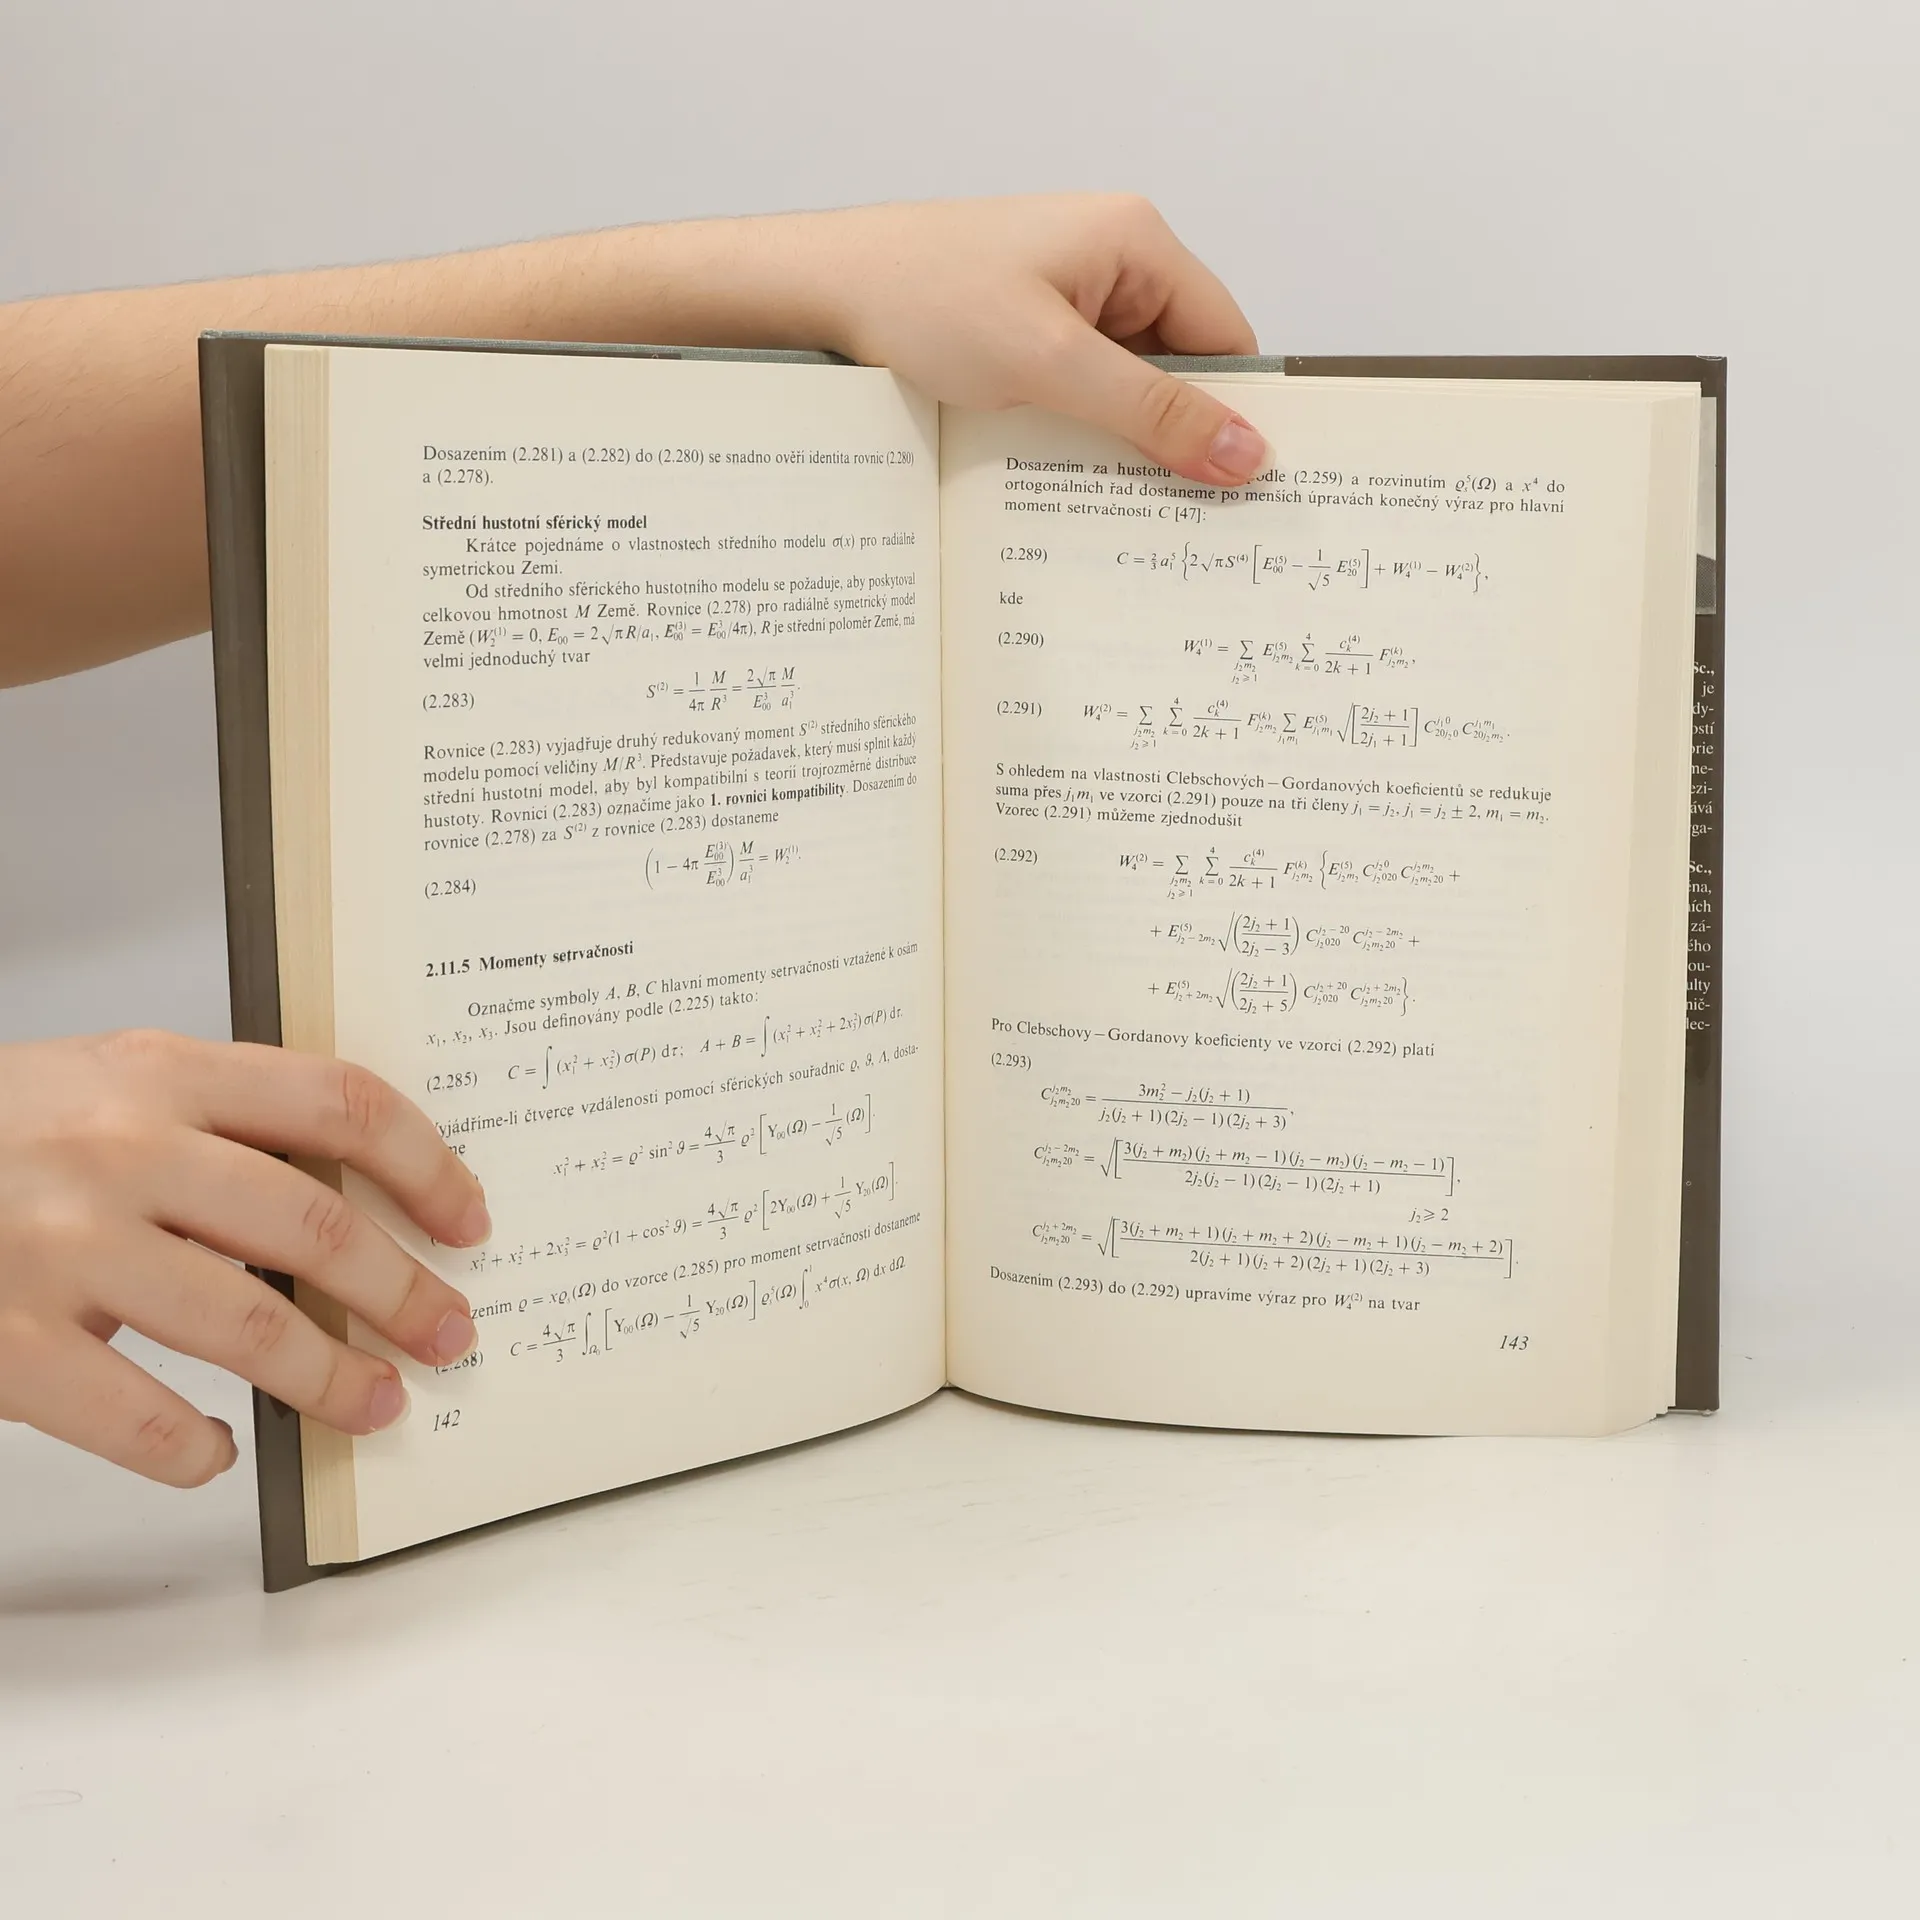 Dosazením (2.281) a (2.282) do (2.280) se snadno ověří identita rovnic (2.280)
a (2.278).
Střední hustotní sférický model
Krátce pojednáme o vlastnostech středního modelu σ(x) pro radiálně
symetrickou Zemi.
Od středního sférického hustotního modelu se požaduje, aby poskytoval
celkovou hmotnost M Země. Rovnice (2.278) pro radiálně symetrický model
Země (W₂⁽¹⁾ = 0, E₀₀ = 2√π R/a₁, E₀₀⁽³⁾ = E₀₀³/4π), R je střední poloměr Země, má
velmi jednoduchý tvar
(2.283) S⁽²⁾ = 1/4π M/R³ = 2√π/E₀₀³ M/a₁³.
Rovnice (2.283) vyjadřuje druhý redukovaný moment S⁽²⁾ středního sférického
modelu pomocí veličiny M/R³. Představuje požadavek, který musí splnit každý
střední hustotní model, aby byl kompatibilní s teorií trojrozměrné distribuce
hustoty. Rovnici (2.283) označíme jako 1. rovnici kompatibility. Dosazením do
rovnice (2.278) za S⁽²⁾ z rovnice (2.283) dostaneme
(2.284) (1 − 4π E₀₀⁽³⁾/E₀₀³) M/a₁³ = W₂⁽¹⁾.
2.11.5 Momenty setrvačnosti
Označme symboly A, B, C hlavní momenty setrvačnosti vztažené k osám
x₁, x₂, x₃. Jsou definovány podle (2.225) takto:
(2.285) C = ∫ (x₁² + x₂²) σ(P) dτ; A + B = ∫ (x₁² + x₂² + 2x₃²) σ(P) dτ.
yjádříme-li čtverce vzdálenosti pomocí sférických souřadnic ϱ, ϑ, Λ, dosta-
me
x₁² + x₂² = ϱ² sin² ϑ = 4√π/3 ϱ² [Y₀₀(Ω) − 1/√5 (Ω)].
x₁² + x₂² + 2x₃² = ϱ²(1 + cos² ϑ) = 4√π/3 ϱ² [2Y₀₀(Ω) + 1/√5 Y₂₀(Ω)].
zením ϱ = xϱₛ(Ω) do vzorce (2.285) pro moment setrvačnosti dostaneme
(2.288) C = 4√π/3 ∫_Ω₀ [Y₀₀(Ω) − 1/√5 Y₂₀(Ω)] ϱₛ⁵(Ω) ∫₀¹ x⁴σ(x, Ω) dx dΩ.
142
Dosazením za hustotu odle (2.259) a rozvinutím ϱₛ⁵(Ω) a x⁴ do
ortogonálních řad dostaneme po menších úpravách konečný výraz pro hlavní
moment setrvačnosti C [47]:
(2.289) C = ⅔ a₁⁵ {2√π S⁽⁴⁾ [E₀₀⁽⁵⁾ − 1/√5 E₂₀⁽⁵⁾] + W₄⁽¹⁾ − W₄⁽²⁾},
kde
(2.290) W₄⁽¹⁾ = ∑_{j₂m₂, j₂⩾1} E_{j₂m₂}⁽⁵⁾ ∑_{k=0}^{4} c_k⁽⁴⁾/(2k + 1) F_{j₂m₂}^{(k)},
(2.291) W₄⁽²⁾ = ∑_{j₂m₂, j₂⩾1} ∑_{k=0}^{4} c_k⁽⁴⁾/(2k + 1) F_{j₂m₂}^{(k)} ∑_{j₁m₁} E_{j₁m₁}⁽⁵⁾ √[(2j₂ + 1)/(2j₁ + 1)] C_{20j₂0}^{j₁0} C_{20j₂m₂}^{j₁m₁}.
S ohledem na vlastnosti Clebschových – Gordanových koeficientů se redukuje
suma přes j₁m₁ ve vzorci (2.291) pouze na tři členy j₁ = j₂, j₁ = j₂ ± 2, m₁ = m₂.
Vzorec (2.291) můžeme zjednodušit
(2.292) W₄⁽²⁾ = ∑_{j₂m₂, j₂⩾1} ∑_{k=0}^{4} c_k⁽⁴⁾/(2k + 1) F_{j₂m₂}^{(k)} {E_{j₂m₂}⁽⁵⁾ C_{j₂020}^{j₂0} C_{j₂m₂20}^{j₂m₂} +
+ E_{j₂−2m₂}⁽⁵⁾ √((2j₂ + 1)/(2j₂ − 3)) C_{j₂020}^{j₂−20} C_{j₂m₂20}^{j₂−2m₂} +
+ E_{j₂+2m₂}⁽⁵⁾ √((2j₂ + 1)/(2j₂ + 5)) C_{j₂020}^{j₂+20} C_{j₂m₂20}^{j₂+2m₂}}.
Pro Clebschovy – Gordanovy koeficienty ve vzorci (2.292) platí
(2.293)
C_{j₂m₂20}^{j₂m₂} = (3m₂² − j₂(j₂ + 1))/(j₂(j₂ + 1)(2j₂ − 1)(2j₂ + 3)),
C_{j₂m₂20}^{j₂−2m₂} = √[3(j₂ + m₂)(j₂ + m₂ − 1)(j₂ − m₂)(j₂ − m₂ − 1)/2j₂(j₂ − 1)(2j₂ − 1)(2j₂ + 1)],
j₂ ⩾ 2
C_{j₂m₂20}^{j₂+2m₂} = √[3(j₂ + m₂ + 1)(j₂ + m₂ + 2)(j₂ − m₂ + 1)(j₂ − m₂ + 2)/2(j₂ + 1)(j₂ + 2)(2j₂ + 1)(2j₂ + 3)].
Dosazením (2.293) do (2.292) upravíme výraz pro W₄⁽²⁾ na tvar
143
Sc.,
je
dy-
ostí
orie
me-
ezi-
ává
rga-
Sc.,
ena,
ních
zá-
ého
ou-
ulty
nič-
lec-